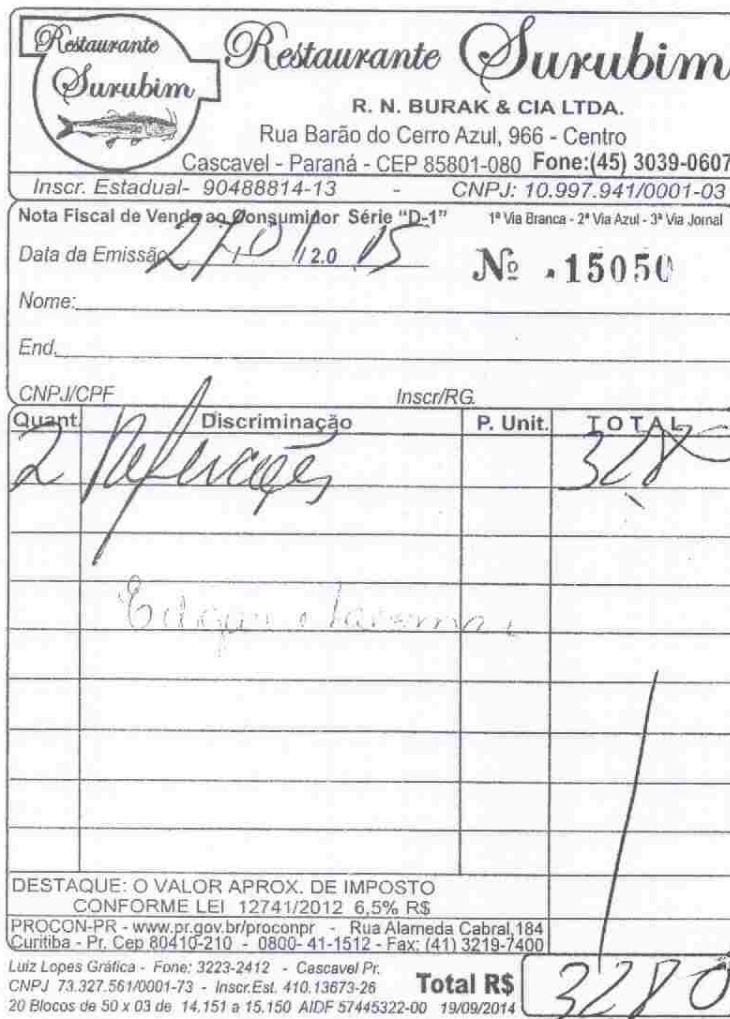 Restaurante
Surubim
Restaurante Surubim
R. N. BURAK & CIA LTDA.
Rua Barão do Cerro Azul, 966 - Centro
Cascavel - Paraná - CEP 85801-080 Fone:(45) 3039-0607
Inscr. Estadual- 90488814-13 - CNPJ: 10.997.941/0001-03
Nota Fiscal de Venda ao Consumidor Série "D-1" 1ª Via Branca - 2ª Via Azul - 3ª Via Jornal
Data da Emissão 27,01/2.0 15 Nº 15050
Nome:
End.
CNPJ/CPF Inscr/RG.
Quant. Discriminação P. Unit. TOTAL
2 Refeições 3280
DESTAQUE: O VALOR APROX. DE IMPOSTO
CONFORME LEI 12741/2012 6,5% R$
PROCON-PR - www.pr.gov.br/proconpr - Rua Alameda Cabral,184
Curitiba - Pr. Cep 80410-210 - 0800- 41-1512 - Fax: (41) 3219-7400
Luiz Lopes Gráfica - Fone: 3223-2412 - Cascavel Pr.
CNPJ 73.327.561/0001-73 - Inscr.Est. 410.13673-26
20 Blocos de 50 x 03 de 14.151 a 15.150 AIDF 57445322-00 19/09/2014
Total R$ 3280